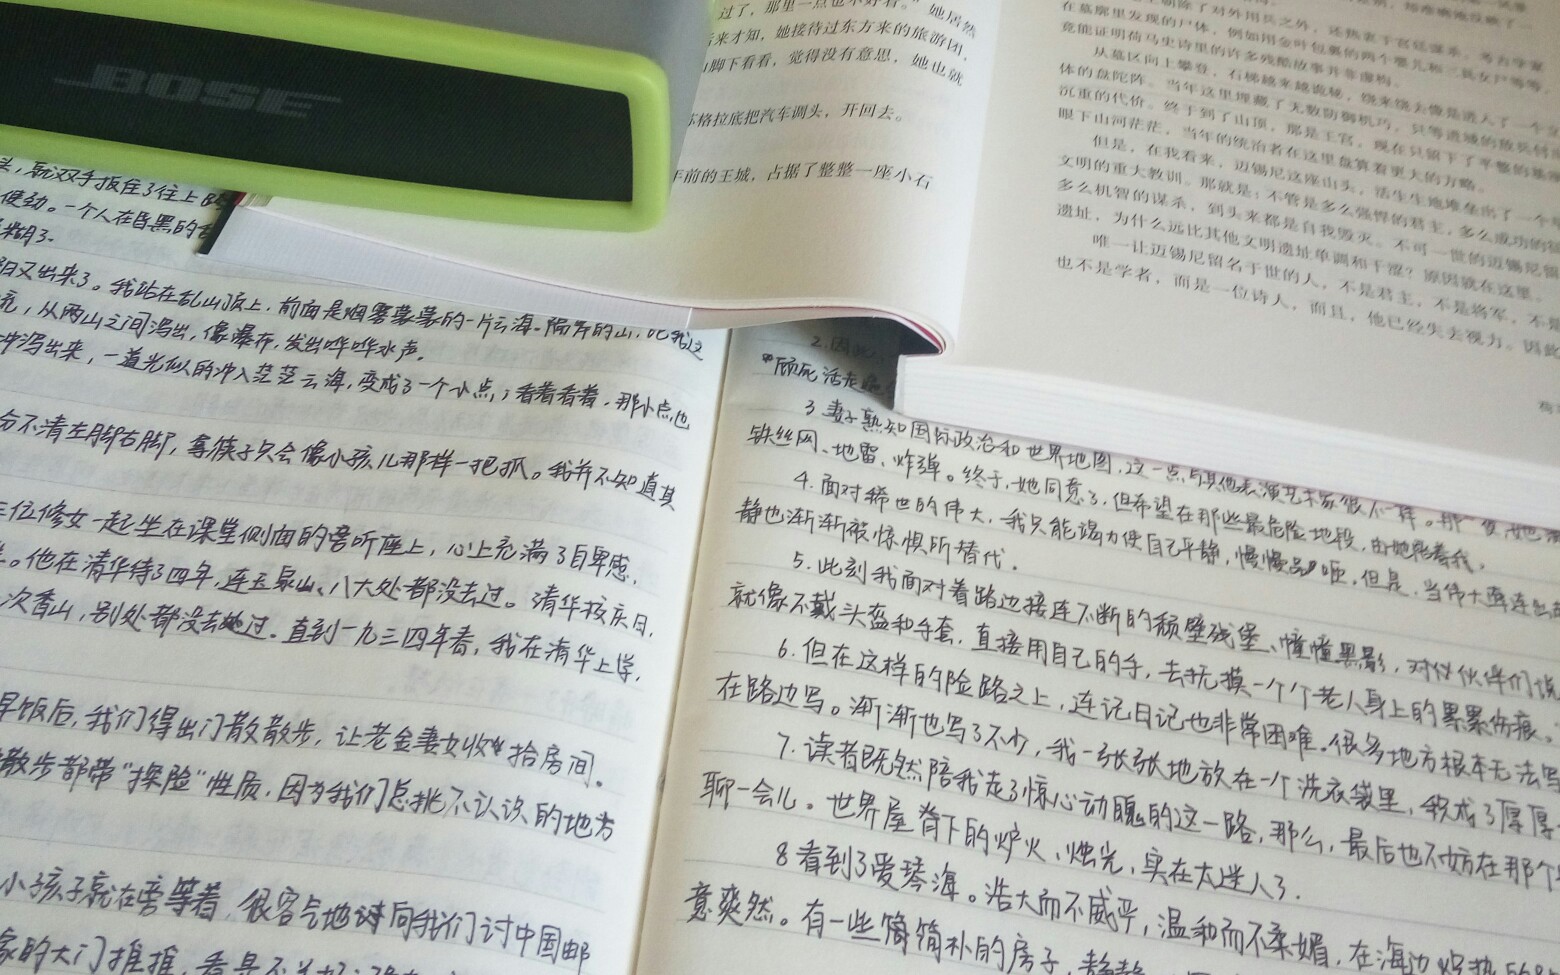 BOSE
过了，那里一点也不好看。”她居然
后来才知，她接待过东方来的旅游团，
山脚下看看，觉得没有意思，她也就
苏格拉底把汽车调头，开回去。
年前的王城，占据了整整一座小石
在墓廓里发现的尸体，例如用金叶包裹的两个婴儿和三具女尸等等，
竟能证明荷马史诗里的许多残酷故事并非虚构。
从墓区向上攀登，石梯越来越诡秘，绕来绕去像是进入了一个立
体的盘陀阵。当年这里埋藏了无数防御机巧，只等进城的敌兵付出
沉重的代价。终于到了山顶，那是王宫，现在只留下了平整的基座
眼下山河茫茫，当年的统治者在这里盘算着更大的方略。
但是，在我看来，迈锡尼这座山头，活生生地堆垒出了一个
文明的重大教训。那就是：不管是多么强悍的君主，多么成功的征
多么机智的谋杀，到头来都是自我毁灭。不可一世的迈锡尼留
遗址，为什么远比其他文明遗址单调和干涩？原因就在这里。
唯一让迈锡尼留名于世的人，不是君主，不是将军，不是
也不是学者，而是一位诗人，而且，他已经失去视力。因此
头，就双手扳住了往上
健劲。一个人在昏黑的
糊了。
阳又出来了。我站在乱山顶上，前面是烟雾蒙蒙的一片云海。隔岸的山，比我这
流，从两山之间泻出，像瀑布，发出哗哗水声。
冲泻出来，一道光似的冲入茫茫云海，变成了一个小点；看着看着，那小点也
分不清左脚右脚，拿筷子只会像小孩儿那样一把抓。我并不知道其
三位修女一起坐在课堂侧面的旁听座上，心上充满了自卑感。
。他在清华待了四年，连玉泉山、八大处都没去过。清华校庆日，
次香山，别处都没去过。直到一九三四年春，我在清华上学，
早饭后，我们得出门散散步，让老金妻女收拾房间。
散步都带“探险”性质，因为我们总挑不认识的地方
小孩子就在旁等着，很客气地向我们讨中国邮
家的大门推推，看是不
2.因此
顾死活走
3 妻子熟知国际政治和世界地图，这一点与其他表演艺术家很不一样。那
铁丝网、地雷、炸弹。终于，她同意了，但希望在那些最危险地段，由她陪着我。
4.面对稀世的伟大，我只能竭力使自己平静，慢慢品咂，但是，当伟大
静也渐渐被惊惧所替代。
5.此刻我面对着路边接连不断的颓壁残堡、幢幢黑影，对伙伴们
就像不戴头盔和手套，直接用自己的手，去抚摸一个个老人身上的累累伤痕。
6.但在这样的险路之上，连记日记也非常困难。很多地方根本无法写
在路边写。渐渐也写了不少，我一张张地放在一个洗衣袋里，积成了厚厚
7.读者既然陪我走了惊心动魄的这一路，那么，最后也不妨在那个
聊一会儿。世界屋脊下的炉火、烛光，实在太迷人了。
8 看到了爱琴海。浩大而不威严，温和而不柔媚，在海边
意爽然。有一些简朴的房子，静静